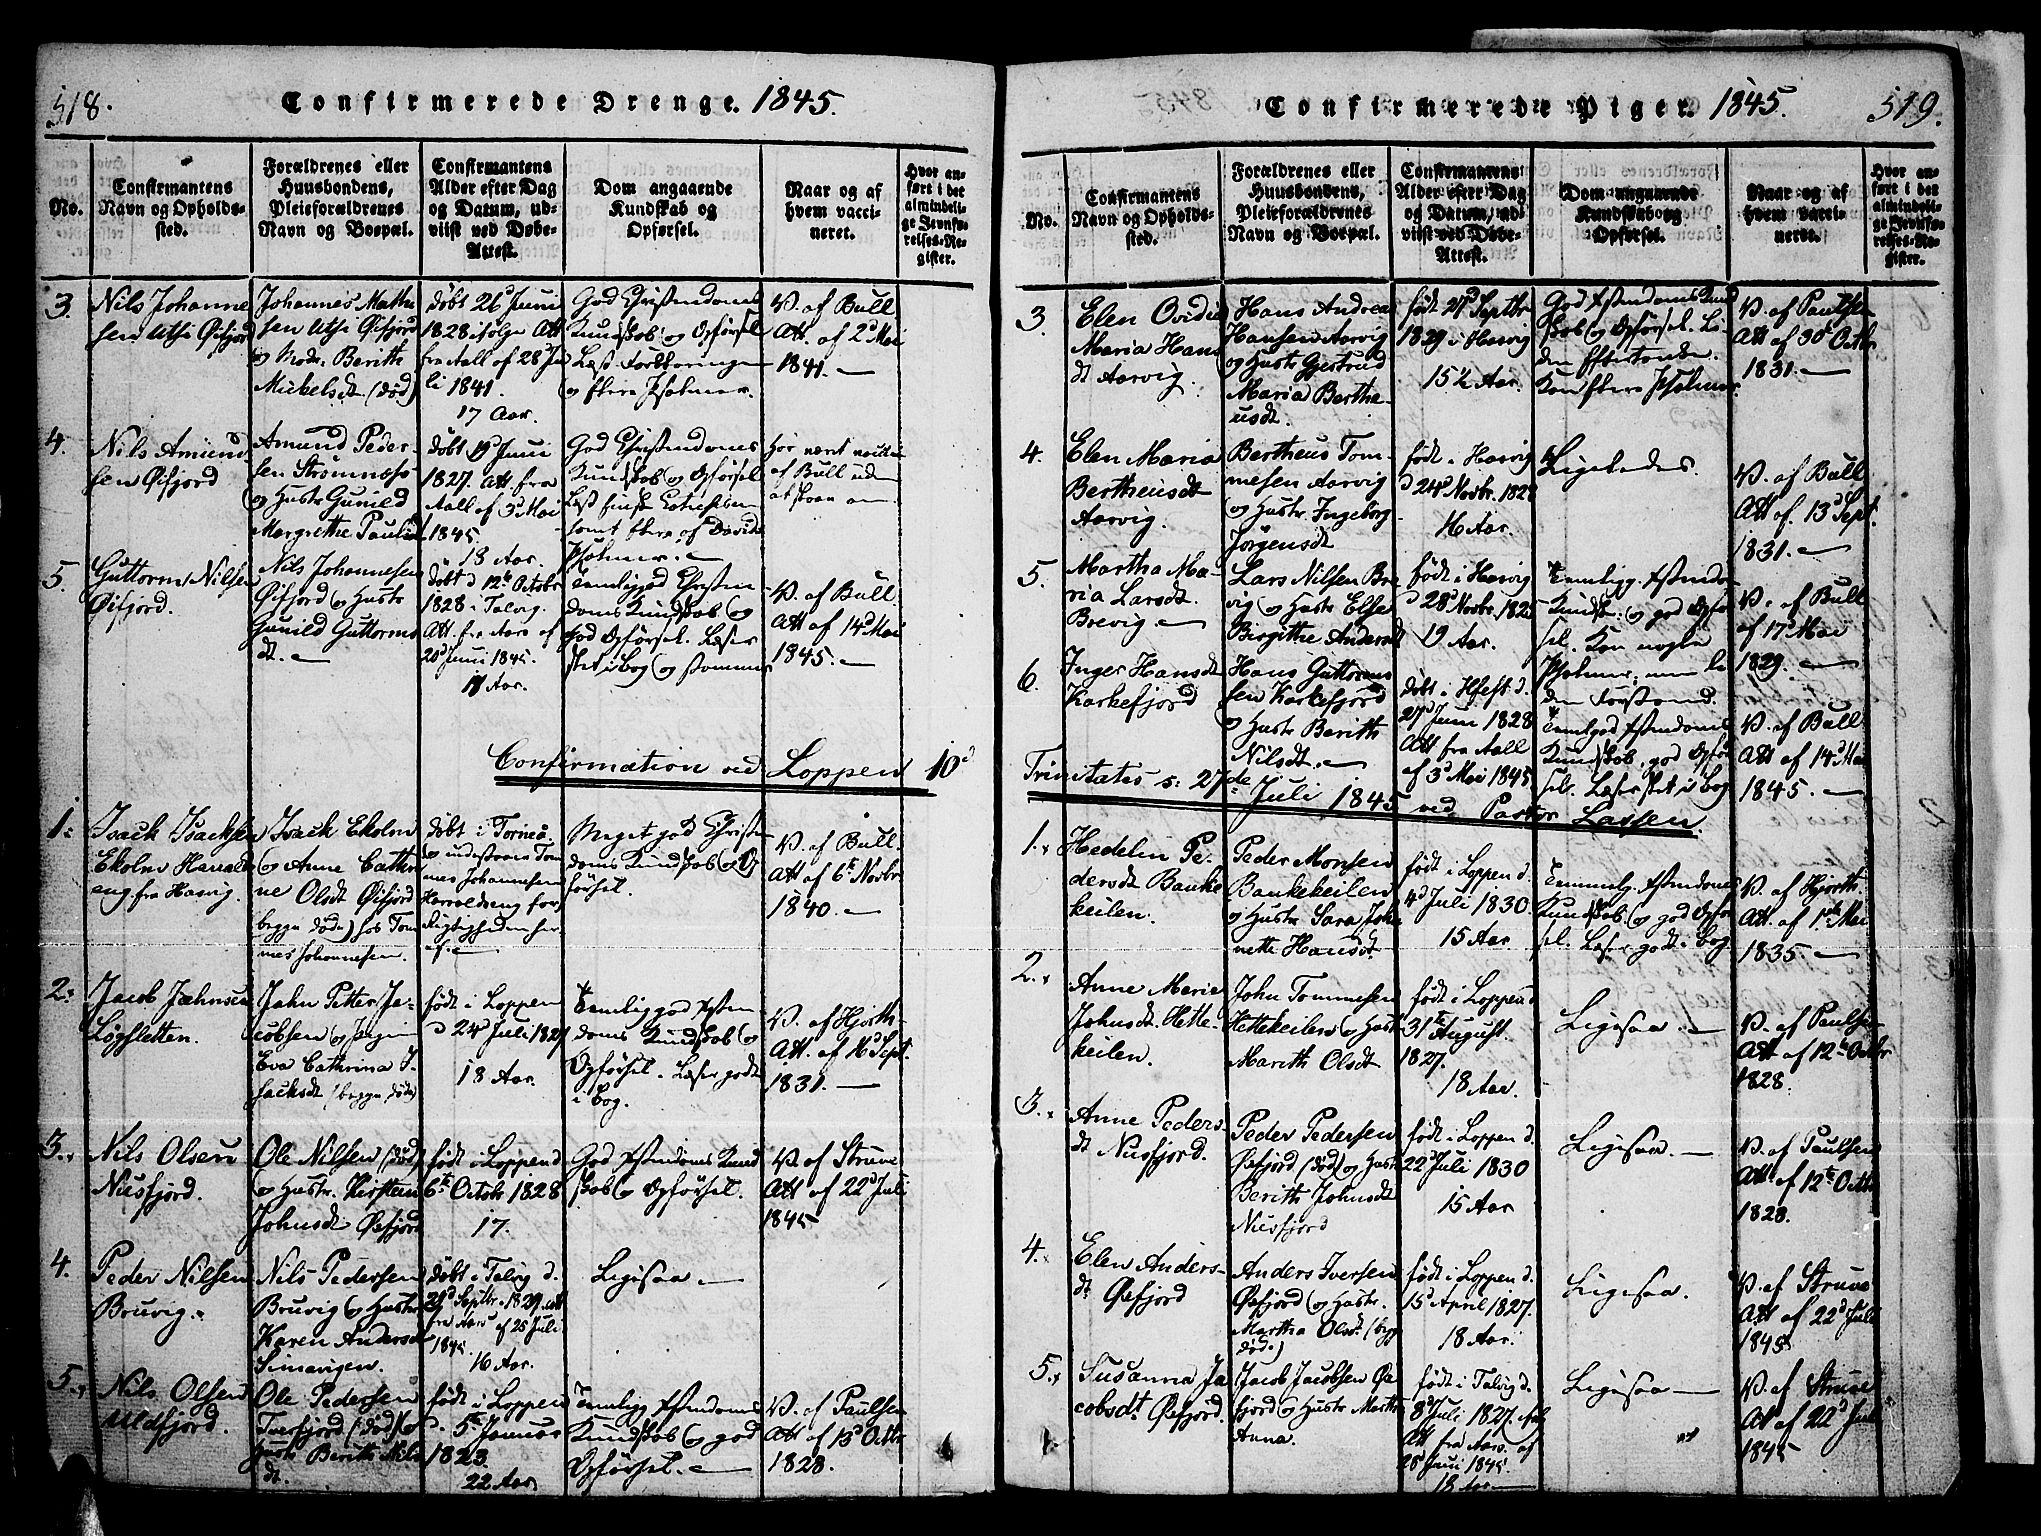 518.
Confirmerede Drenge. 1845.
No.
Confirmantens
Navn og Opholds-
sted.
Forældrenes eller
Huusbondens,
Pleieforældrenes
Navn og Bopæl.
Confirmantens
Alder efter Dag
og Datum, ud-
viist ved Døbe-
Attest.
Dom angaaende
Kundskab og
Opførsel.
Naar og af
hvem vacci-
neret.
Hvor an-
ført i det
almindeli-
ge Jevnfø-
relses-Re-
gister.
3
Nils Johanne
sen Utsi Øifjord
Johannes Mathi
sen Utsi Øifjord
og Moder Berith
Mickelsdt (død)
døbt 26d Juni
1828 ifølge Att
fra Aall af 28d Ju
li 1841.
17 Aar.
God Christendoms
Kundskab og Opførsel
Læst Forklaringen
og flere Psalmer.
V. af Bull
Att. af 2d Mai
1841. —
4.
Nils Amund
sen Øifjord
Amund Peder-
sen Strømnæss
og Hustr Gunild
Margrethe Paulsdt
døbt 19 Juni
1827. Att. fra
Aall af 3d Mai
1845.
18 Aar.
God Christendoms
Kundskab og Opførsel
Læst finsk
samt flere af Davids
Psalmer. —
Har været
af Bull uden
at slaae an.
5.
Guttorm Nilsen
Øifjord.
Nils Johannesen
Øifjord og Hustr
Gunild Guttorms
dt. —
døbt d 12te Octobr
1828 i Talvig.
Att fra Aars af
20d Juni 1845.
17 Aar.
Temelig god Christen
doms Kundskab og
god Opførsel. Læser
slet i Bog og stammer
V. af Bull.
Att af 14d Mai
1845. —
Confirmation ved Loppen 10d
1.
Isack Isacksen
Ekolm Haraalds
eng fra Hasvig.
Isack Ekolm
og Anne Cathri
ne Olsdt Øifjord
begge døde) hos Tom
mes Johannesen.
døbt i Torneå
og udestaaer Tom
mes Johannesen
Harraldseng for
Rigtigheden her
af. —
Meget god Christen
doms Kundskab og Op
førsel.
V. af Bull.
Att af 6te Novbr
1840. —
2.
Jacob Jæhnsen
Løgsletten.
Jahn Petter Ja-
cobsen og Pigen
Eva Cathrina I-
sacksdt (begge døde)
født i Loppen
d 24d Juli 1827
18 Aar.
Temelig god Χsten
doms Kundskab og
Opførsel. Læser godt
i bog.
V. af Hjorth.
Att. af 16d Sept.
1831. —
3.
Nils Olsen
Nusfjord.
Ole Nilsen (død)
og Hustr. Kirsten
Johnsdt Øksfjord
født i Loppen d.
6te Octobr 1828
17.
God Χstendoms Kund
skab og Opførsel.
V. af Struve
Att af 22d Juli
1845
4.
Peder Nilsen
Bruvig.
Nils Pedersen
Bruvig og Hustr
Karen Andersdt
Simavigen.
døbt i Talvig d.
29d Septbr. 1829. att
fra Aars af 25 Juli
1845.
16 Aar.
Ligesaa —
5.
Nils Olsen
Uldfjord.
Ole Pedersen
Tverfjord (død) og
Hustr Berith Nils
dt.
født i Loppen
d. 5te Januar
1823.
22 Aar.
Temelig Χstendoms
Kundskab og god
Opførsel. —
V. af Paulsen
Att af 13d Octbr
1828.
Confirmerede Piger. 1845.
519.
No.
Confirmantens
Navn og Opholds-
sted.
Forældrenes eller
Huusbondens,
Pleieforældrenes
Navn og Bopæl.
Confirmantens
Alder efter Dag
og Datum, ud-
viist ved Døbe-
Attest.
Dom angaaende
Kundskab og
Opførsel.
Naar og af
hvem vacci-
neret.
Hvor an-
ført i det
almindeli-
ge Jevnfø-
relses-Re-
gister.
3.
Elen Ovidia
Maria Hans
dt Aarvig.
Hans Andrea
Hansen Aarvig
og Hustr Gjertrud
Maria Berthe
usdt.
født 27d Septbr
1829 i Hasvig
15½ Aar.
God Χstendoms Kund
skab og Opførsel. Li
den Eftertanke.
Kan flere Psalmer.
V. af Paulsen
Att af 30d Octbr
1831. —
4.
Elen Maria
Bertheusdt
Aarvig.
Bertheus Tom-
mesen Aarvig
og Hustr Ingeborg
Jørgensdt
født i Hasvig
d 24d Novbr. 1828
16 Aar.
Ligeledes.
V. af Bull
Att af. 13d Sept.
1831. —
5.
Martha Ma-
ria Larsdt.
Brevig —
Lars Nilsen Bre
vig og Hustr Else
Birgithe Andersdt
født i Hasvig
d 28d Novbr. 1825
19 Aar.
Temmelig Χstendo-
Kundsk. og god Opfør
sel. Kan nogle
Psalmer, men li
den Forstand.
V. af Bull
af 17d Mai
1829. —
6.
Inger Hansdt
Karkefjord
Hans Guttorms
sen Karkefjord
og Hustr Berith
Nilsdt. —
døbt i Hfest d.
27d Juni 1828
Att fra Aall
af 3d Mai 1845
Temelgod Χstendoms
Kundskab, god Opfør
sel. Læser slet i bog
V. af Bull.
Att af 14d Mai
1845. —
Trinitates s: 27de Juli 1845 ved Pastor Lassen.
1.
Hedelin Pe-
dersdt Banke
keilen.
Peder Monsen
Bankekeilen
og Hustr Sara Joha
nette Hansdt.
født i Loppen d.
4d Juli 1830.
15 Aar.
Temmelig. Χstendoms
Kundskab og god Opfør
sel. Læser godt i bog
V. af Hjorth.
Att. af 1te Mai
1835. —
2.
Anne Maria
Johnsdt. Hette-
keilen.
John Tommesen
Hettekeilen og Hustr
Marith Olsdt
født i Loppen d
31te August.
1827.
18 Aar.
Ligesaa. —
V. af Paulsen
Att af 12te Octbr
1828.
3.
Anne Peders-
dt Nusfjord.
Peder Pedersen
Øxefjord (død) og Hustr
Berith Johnsdt
Nusfjord
født i Loppen d.
22d Juli 1830
15 Aar
Ligesaa. —
V. af Paulsen
Att af 12te Octbr
1828.
4.
Elen Anders-
dt Øxfjord
Anders Iversen
Øxefjord og Hustr.
Martha Olsdt (begge
død.)
født i Loppen d.
15d April 1827.
18 Aar.
Ligesaa.
V. af Struve
Att af 22d Juli
1845
5.
Susanna Ja
cobsdt. Øxefjord.
Jacob Jacobsen Øx
fjord og Hustr Marth
Anna.
født i Talvig d.
8d Juli 1827.
Att fra Aars. af
28 Juni 1845
18 Aar —
Ligesaa —
V. af Struve
Att af 22d Juli
1845